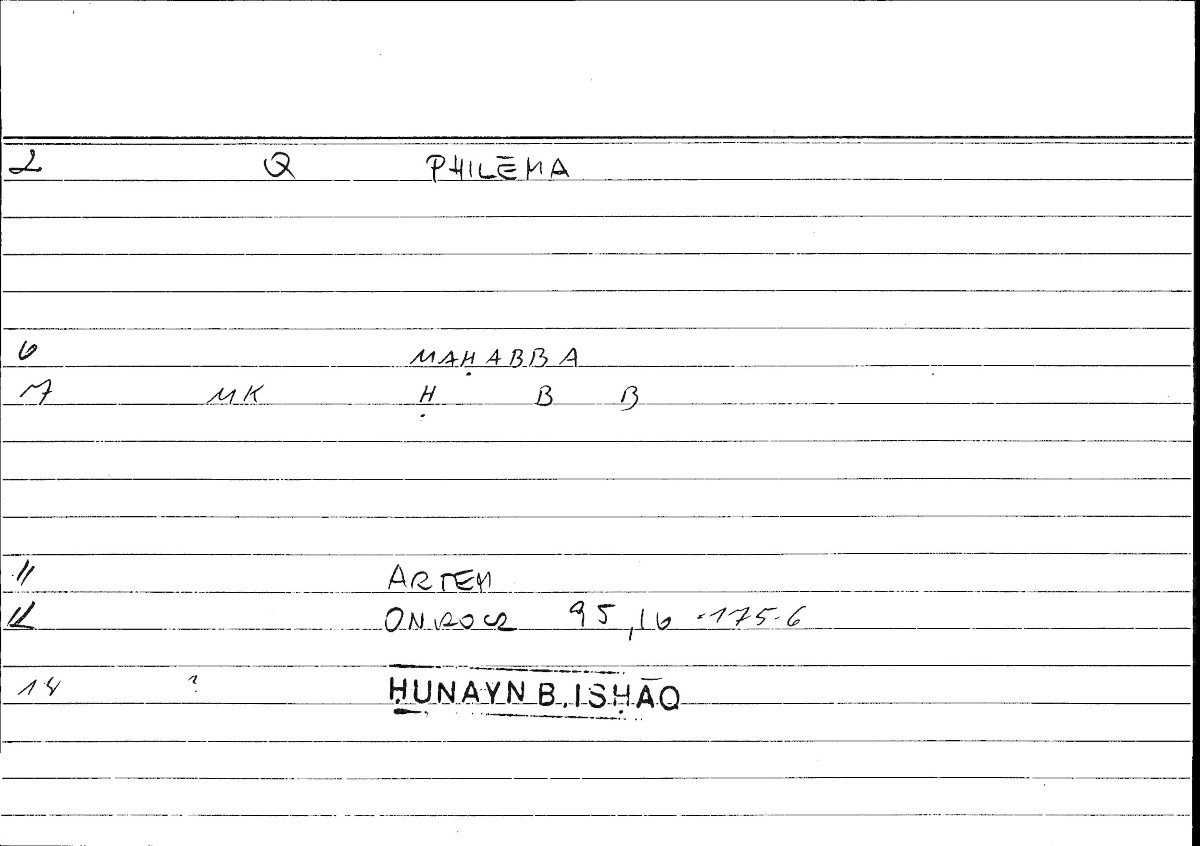 2 Q PHILĒMA
6 MAḤABBA
7 MK Ḥ B B
11 ARTEM
12 ONIROCR 95,16 · 175.6
14 ? ḤUNAYN B. ISḤĀQ